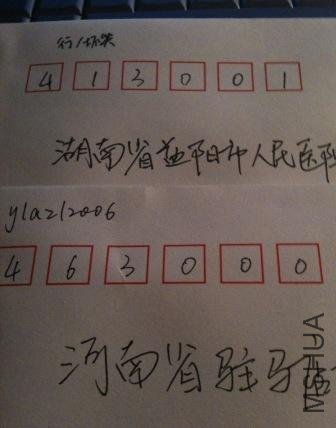 413001
湖南省益阳市人民医院
y1a212006
463000
河南省驻马店
MSHUA